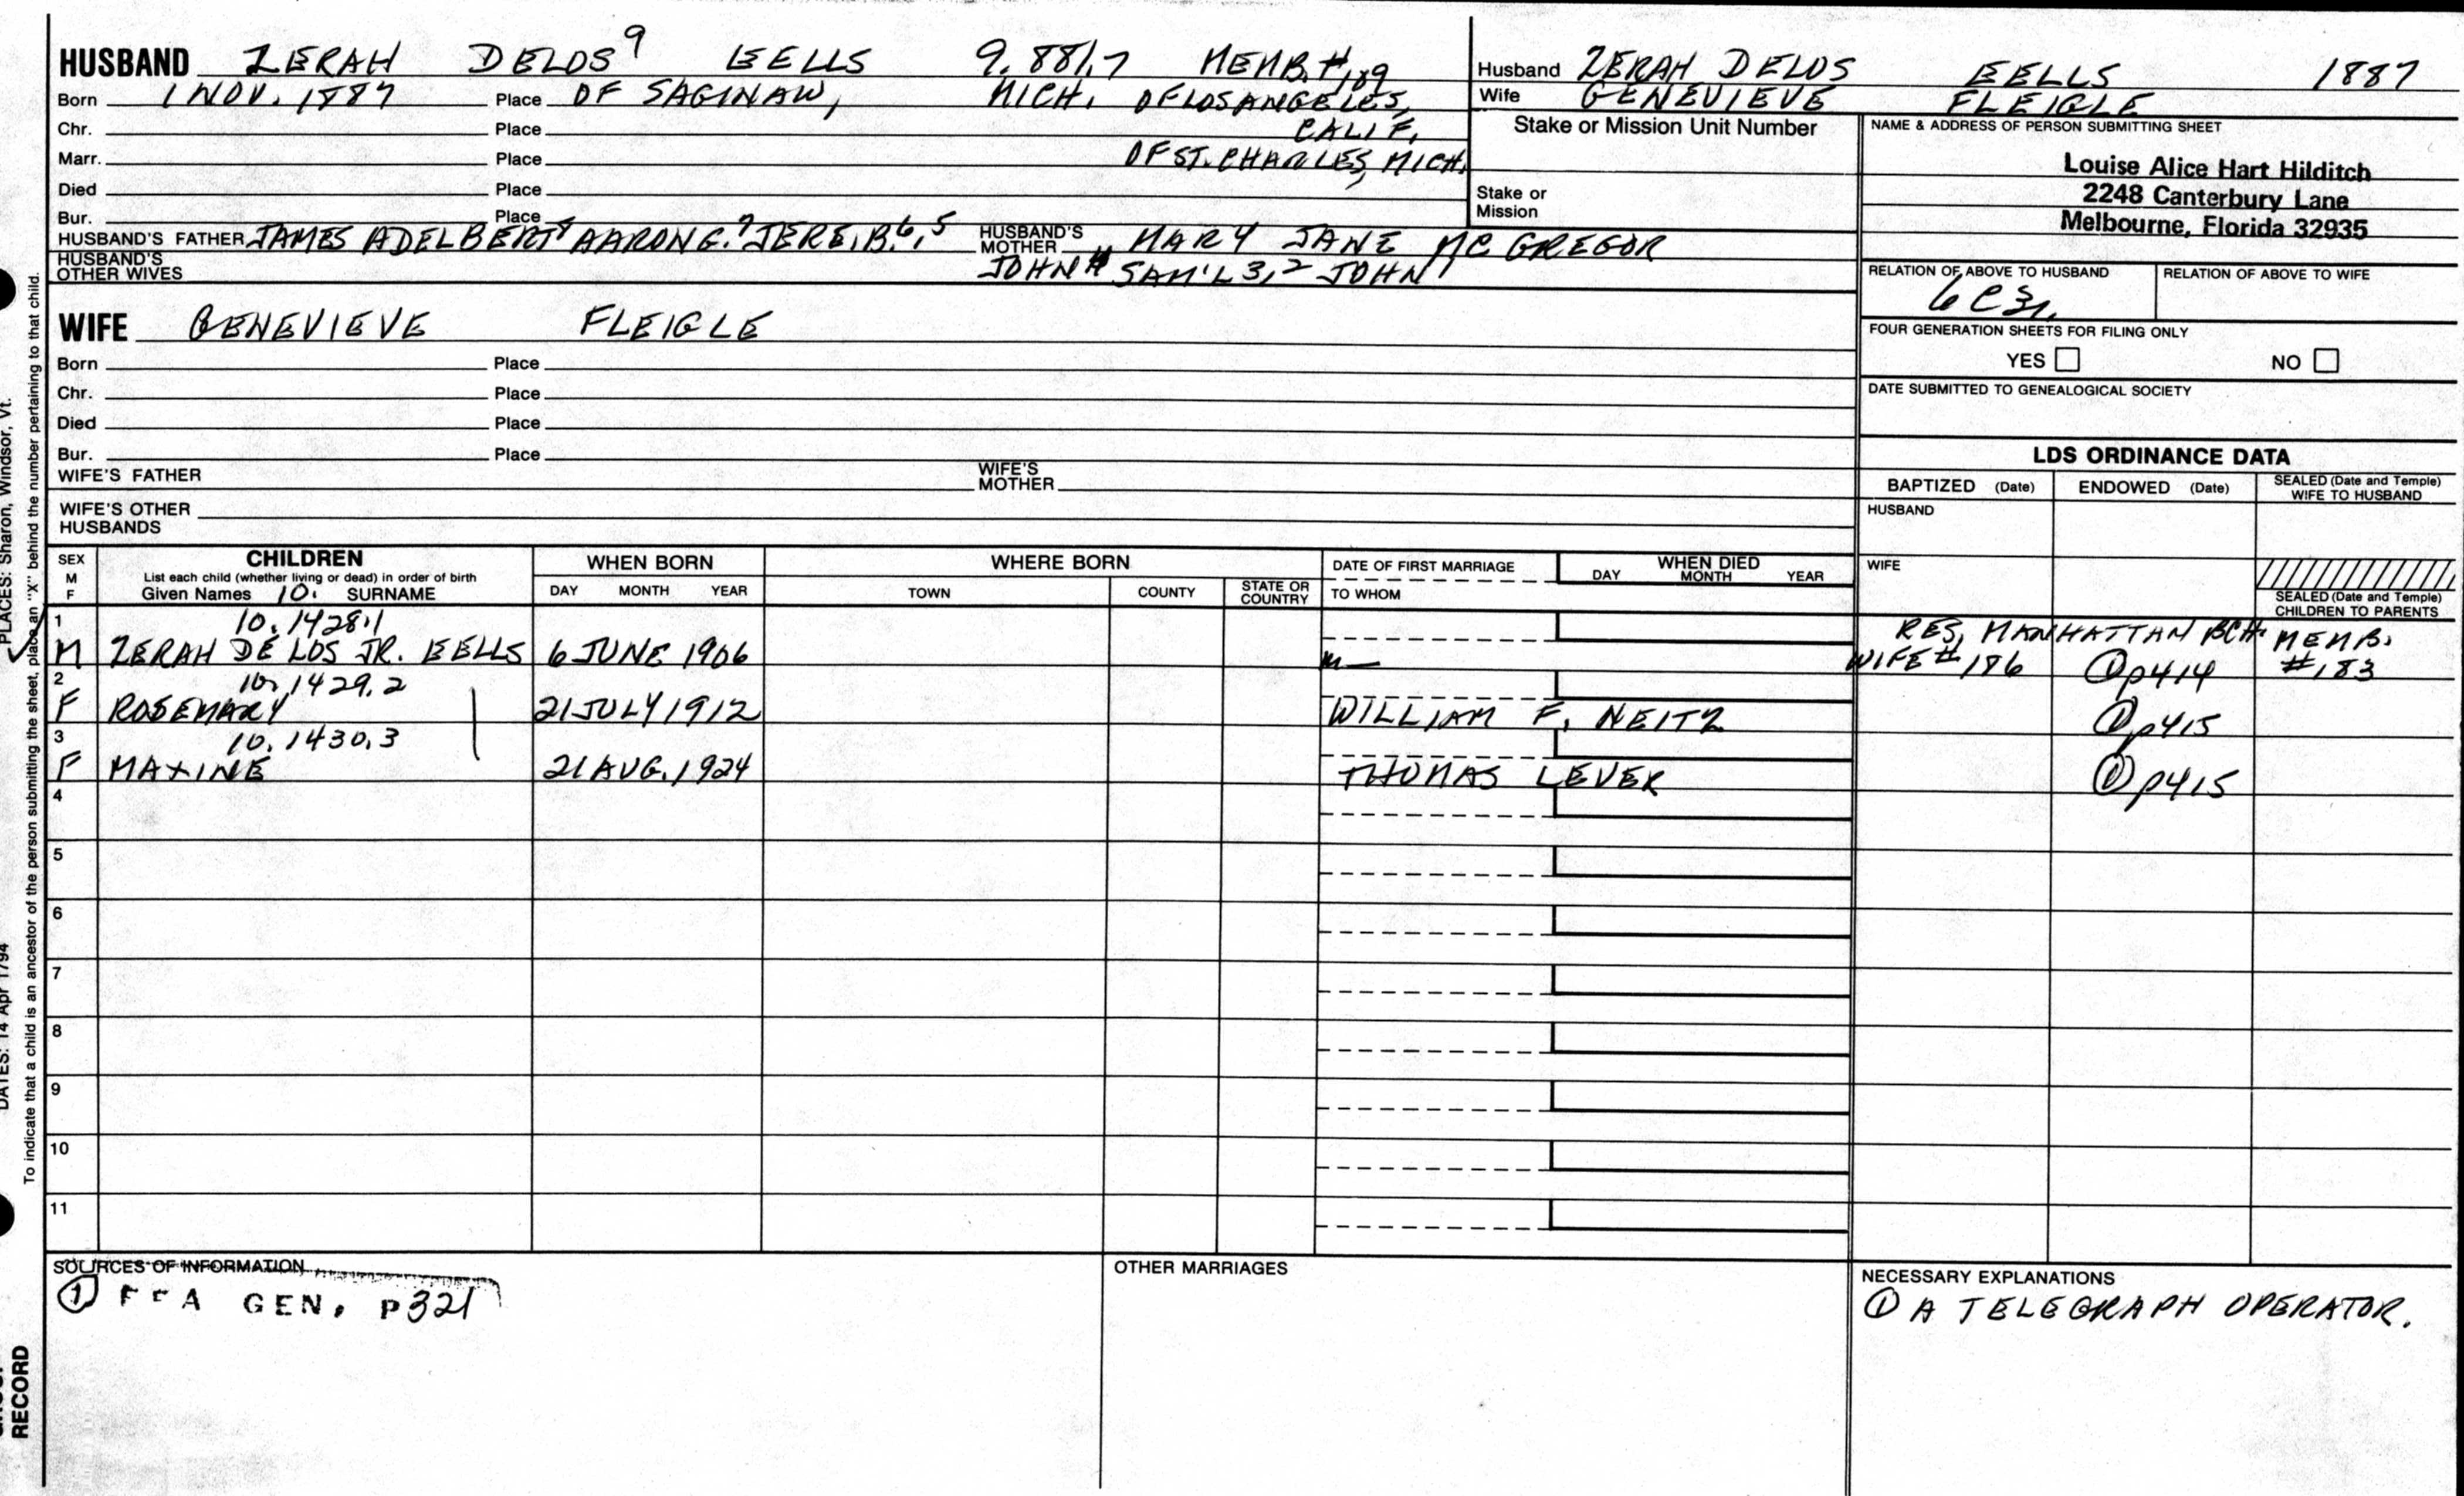 HUSBAND ZERAH DELOS 9 EELLS 9.881.7 MEMB.#189
Born 1 NOV. 1887 Place OF SAGINAW, MICH. OF LOS ANGELES,
Chr. Place CALIF.
Marr. Place OF ST. CHARLES, MICH.
Died Place
Bur. Place
HUSBAND'S FATHER JAMES ADELBERT 8 AARON G. 7 JERE. B. 6, 5 HUSBAND'S MOTHER MARY JANE MC GREGOR
HUSBAND'S OTHER WIVES JOHN 4 SAM'L 3, 2 JOHN 1
WIFE GENEVIEVE FLEIGLE
Born Place
Chr. Place
Died Place
Bur. Place
WIFE'S FATHER WIFE'S MOTHER
WIFE'S OTHER HUSBANDS
Husband ZERAH DELOS EELLS 1887
Wife GENEVIEVE FLEIGLE
Stake or Mission Unit Number
Stake or Mission
NAME & ADDRESS OF PERSON SUBMITTING SHEET
Louise Alice Hart Hilditch
2248 Canterbury Lane
Melbourne, Florida 32935
RELATION OF ABOVE TO HUSBAND RELATION OF ABOVE TO WIFE
6C3r.
FOUR GENERATION SHEETS FOR FILING ONLY
YES NO
DATE SUBMITTED TO GENEALOGICAL SOCIETY
LDS ORDINANCE DATA
BAPTIZED (Date) ENDOWED (Date) SEALED (Date and Temple) WIFE TO HUSBAND
HUSBAND
WIFE
SEALED (Date and Temple) CHILDREN TO PARENTS
SEX M F CHILDREN WHEN BORN WHERE BORN DATE OF FIRST MARRIAGE WHEN DIED
List each child (whether living or dead) in order of birth
Given Names 10. SURNAME DAY MONTH YEAR TOWN COUNTY STATE OR COUNTRY TO WHOM DAY MONTH YEAR
1 10.1428.1 RES. MANHATTAN BCH. MEMB.
M ZERAH DE LOS JR. EELLS 6 JUNE 1906 m— WIFE # 186 ① p414 #183
2 10.1429.2
F ROSEMARY 21 JULY 1912 WILLIAM F. NEITZ ① p415
3 10.1430.3
F MAXINE 21 AUG. 1924 THOMAS LEVER ① p415
4
5
6
7
8
9
10
11
SOURCES OF INFORMATION
① GEN. P321
OTHER MARRIAGES
NECESSARY EXPLANATIONS
① A TELEGRAPH OPERATOR.
PLACES: Sharon, Windsor, Vt.
DATES: 14 Apr 1794
To indicate that a child is an ancestor of the person submitting the sheet, place an "X" behind the number pertaining to that child.
RECORD